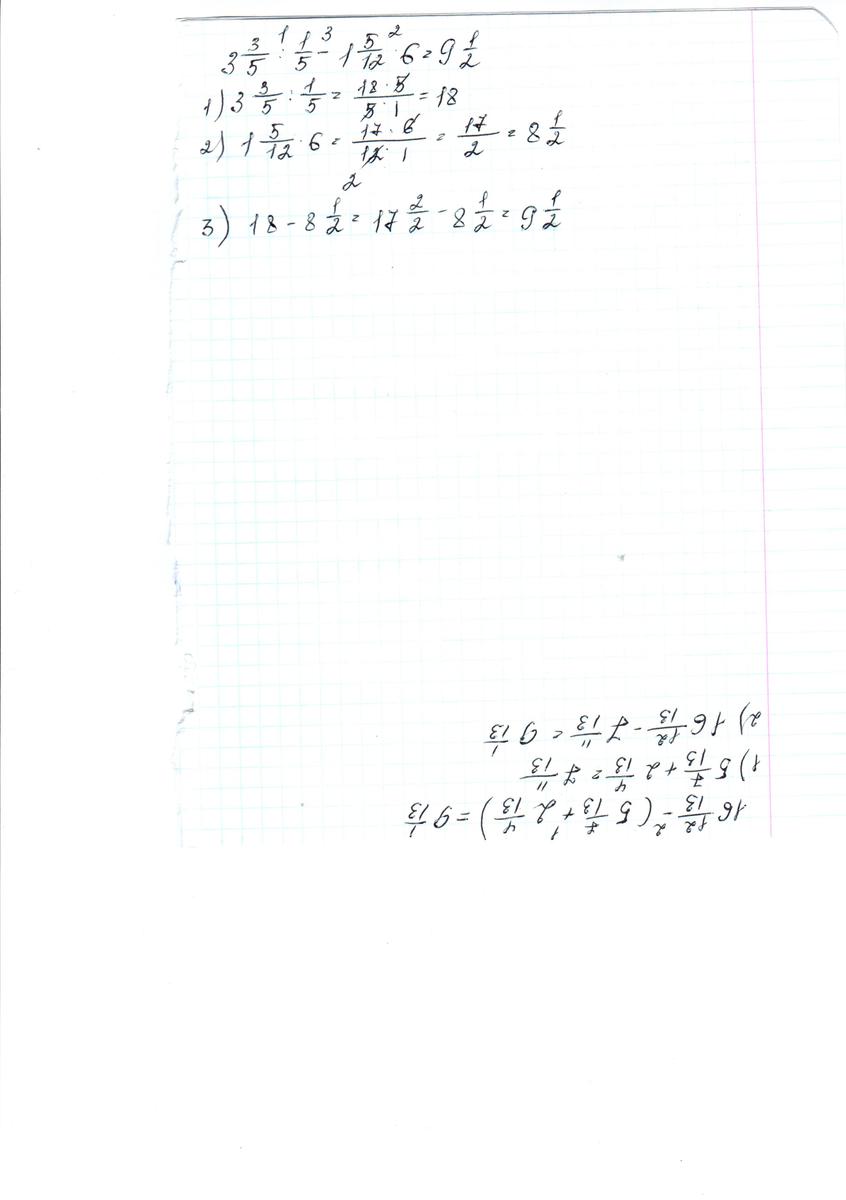 3 3/5 : 1/5 - 1 5/12 · 6 = 9 1/2
1) 3 3/5 : 1/5 = 18 · 5 / 5 · 1 = 18
2) 1 5/12 · 6 = 17 · 6 / 12 · 1 = 17/2 = 8 1/2
2
3) 18 - 8 1/2 = 17 2/2 - 8 1/2 = 9 1/2
16 12/13 - (5 7/13 + 2 4/13) = 9 1/13
1) 5 7/13 + 2 4/13 = 7 11/13
2) 16 12/13 - 7 11/13 = 9 1/13